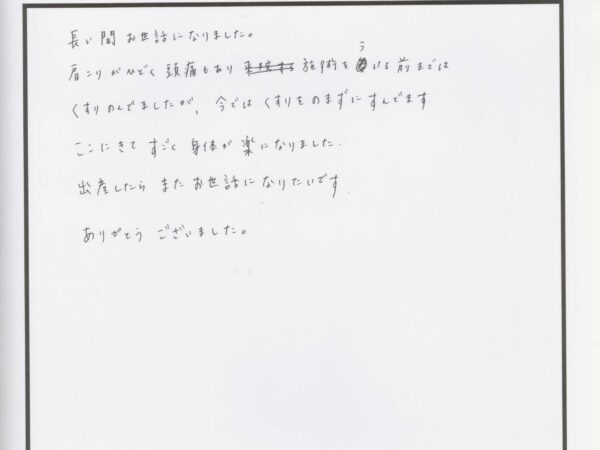 長い間お世話になりました。
肩こりがひどく頭痛もあり 施術をうける前までは
くすりのんでましたが、今ではくすりをのまずにすんでます
ここにきてすごく身体が楽になりました.
出産したらまたお世話になりたいです.
ありがとうございました。